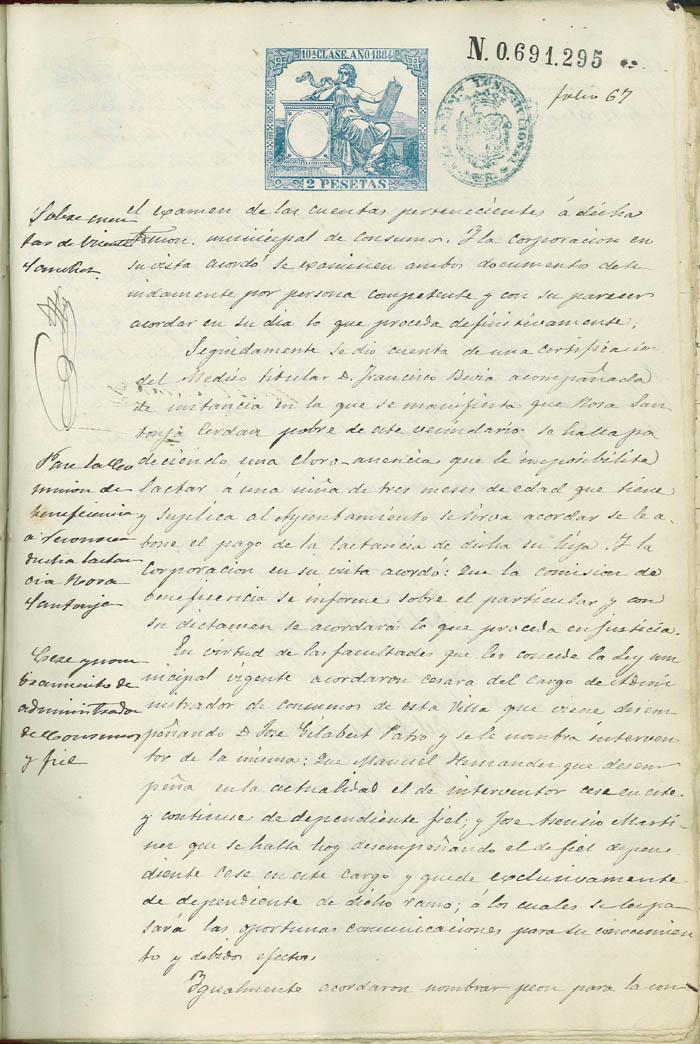 10ª CLASE. AÑO 1884
2 PESETAS
N. 0.691.295
folio 67
Sobre cuen
tas de Vicente
Sanchez
el examen de las cuentas pertenecientes á dicha
municipal de consumos. Y la corporacion en
su vista acordó se examinen ambos documento dete
nidamente por persona competente y con su parecer
acordar en su dia lo que proceda definitivamente.
Seguidamente se dio cuenta de una certificacion
del Medico titular D. Francisco acompañada
de instancia en la que se manifiesta que Rosa San
tonja Cerdan pobre de este vecindario se halla pa
deciendo una cloro-anemia que le imposibilita
lactar á una niña de tres meses de edad que tiene
y suplica al Ayuntamiento se sirva acordar se le a
bone el pago de la lactancia de dicha su hija. Y la
Corporacion en su vista acordó: Que la comision de
beneficencia se informe sobre el particular y con
su dictamen se acordará lo que proceda en justicia.
Pase la Co
mision de
beneficencia
a
dicha lactan
cia Rosa
Santonja
En virtud de las facultades que les concede la Ley mu
nicipal vigente acordaron cesara del cargo de Admi
nistrador de consumos de esta Villa que viene desem
peñando D. Jose Gilabert Patro y se le nombra interven
tor de la misma: Que Manuel Hernandez que desem
peña en la actualidad el de interventor cese en este
y continue de dependiente fiel; y Jose Asencio Marti
nez que se halla hoy desempeñando el de fiel depen
diente cese en este cargo y quede exclusivamente
de dependiente de dicho ramo; á los cuales se les pa
sará las oportunas comunicaciones para su conocimien
to y debidos efectos.
Cese y nom
bramiento de
administrador
de Consumos
y fiel
Igualmente acordaron nombrar peon para la con